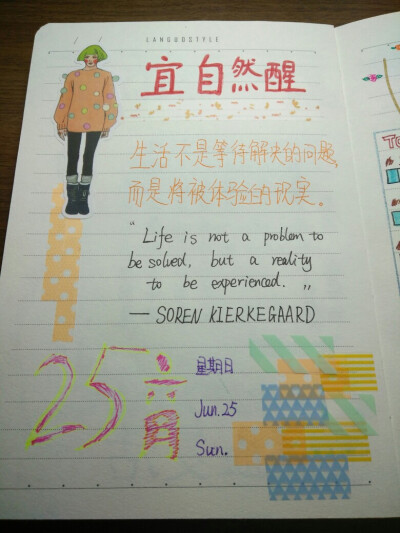 LANGUOSTYLE
宜自然醒
生活不是等待解决的问题,
而是将被体验的现实。
“Life is not a problem to
be solved, but a reality
to be experienced.”
— SOREN KIERKEGAARD
25
六月
星期日
Jun.25
Sun.